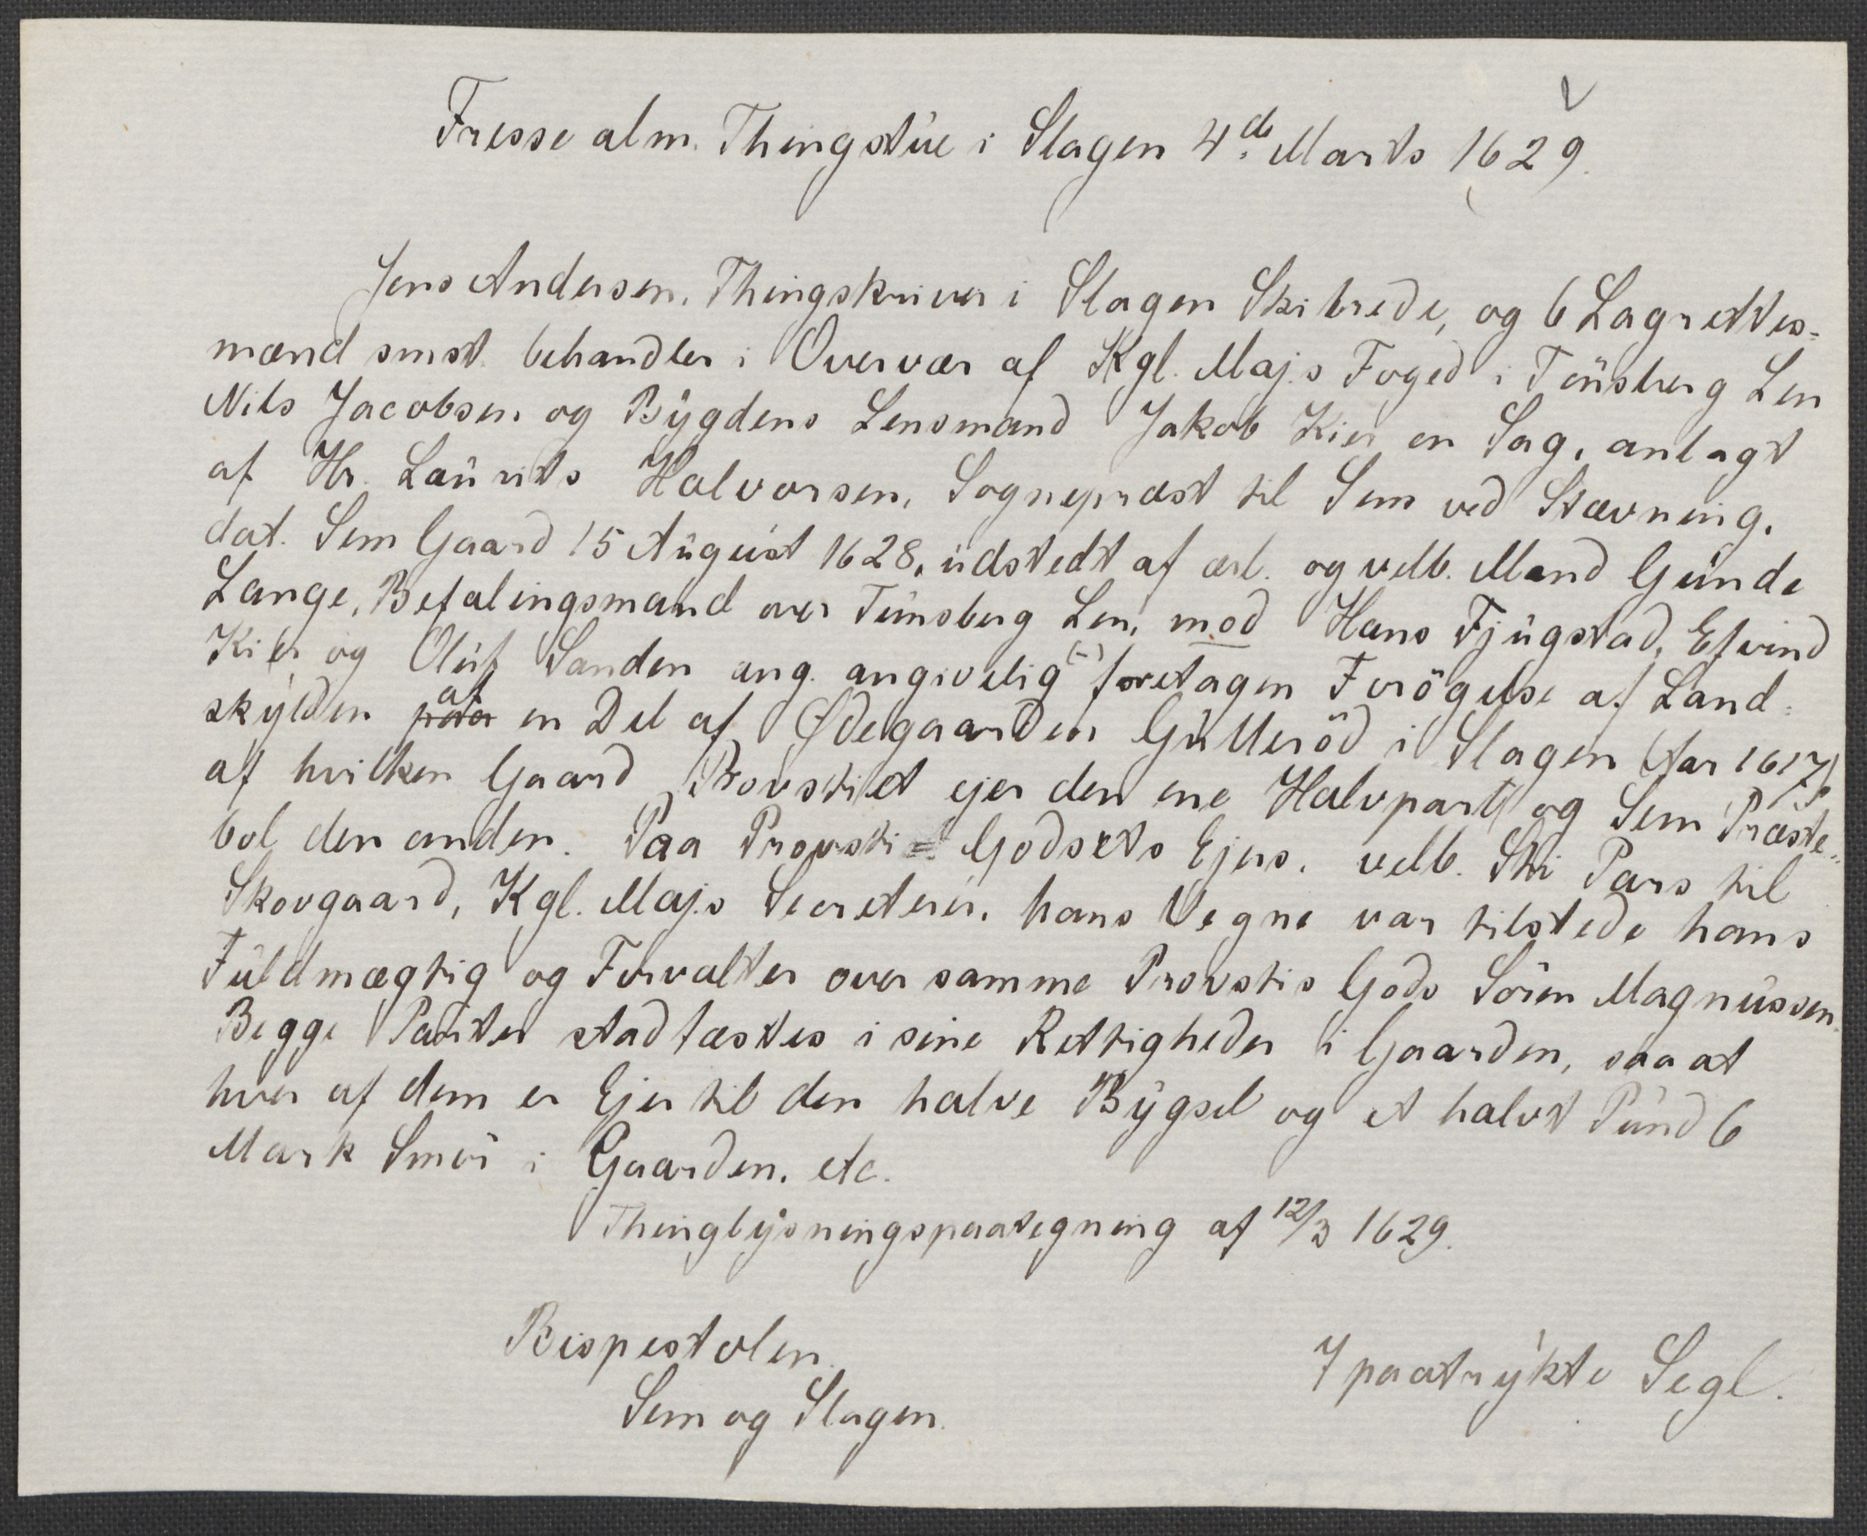 Fresse alm. Thingstue i Slagen 4de Marts 1629.
Jens Andersen, Thingskriver i Slagen Skibrede, og 6 Lagrettes-
mænd smst. behandler i Overvær af Kgl. Maj.s Foged i Tønsberg Len
Nils Jacobsen og Bygdens Lensmand Jakob Kier en Sag, anlagt
af Hr. Laurits Halvorsen, Sogneprest til Sem ved Stævning,
dat. Sem Gaard 15 August 1628, udstedt af ærl. og velb. Mand Gunde
Lange, Befalingsmand over Tunsberg Len, mod Hans Fjugstad, Efvind
Kier og Oluf Sanden ang. angivelig (-) foretagen Forøgelse af Land-
skylden af en Del af Ødegaarden Gulleröd i Slagen (Aar 1617)
af hvilken Gaard Provstiet ejer den ene Halvpart og Sem Præste-
bol den anden. Paa Provsti-Godsets Ejers, velb. Sti Pars til
Skovgaard, Kgl. Maj.s Secreterer, hans Vegne var tilstede hans
Fuldmægtig og Forvalter over samme Provstis Gods Sören Magnussen.
Begge Parter stadfæstes i sine Rettigheder i Gaarden, saa at
hver af dem er Ejer til den halve Bygsel og et halvt Pund 6
Mark Smör i Gaarden, etc.
Thinglysningspaategning af 12/3 1629.
Bispestolen.
7 paatrykte Segl.
Sem og Slagen.